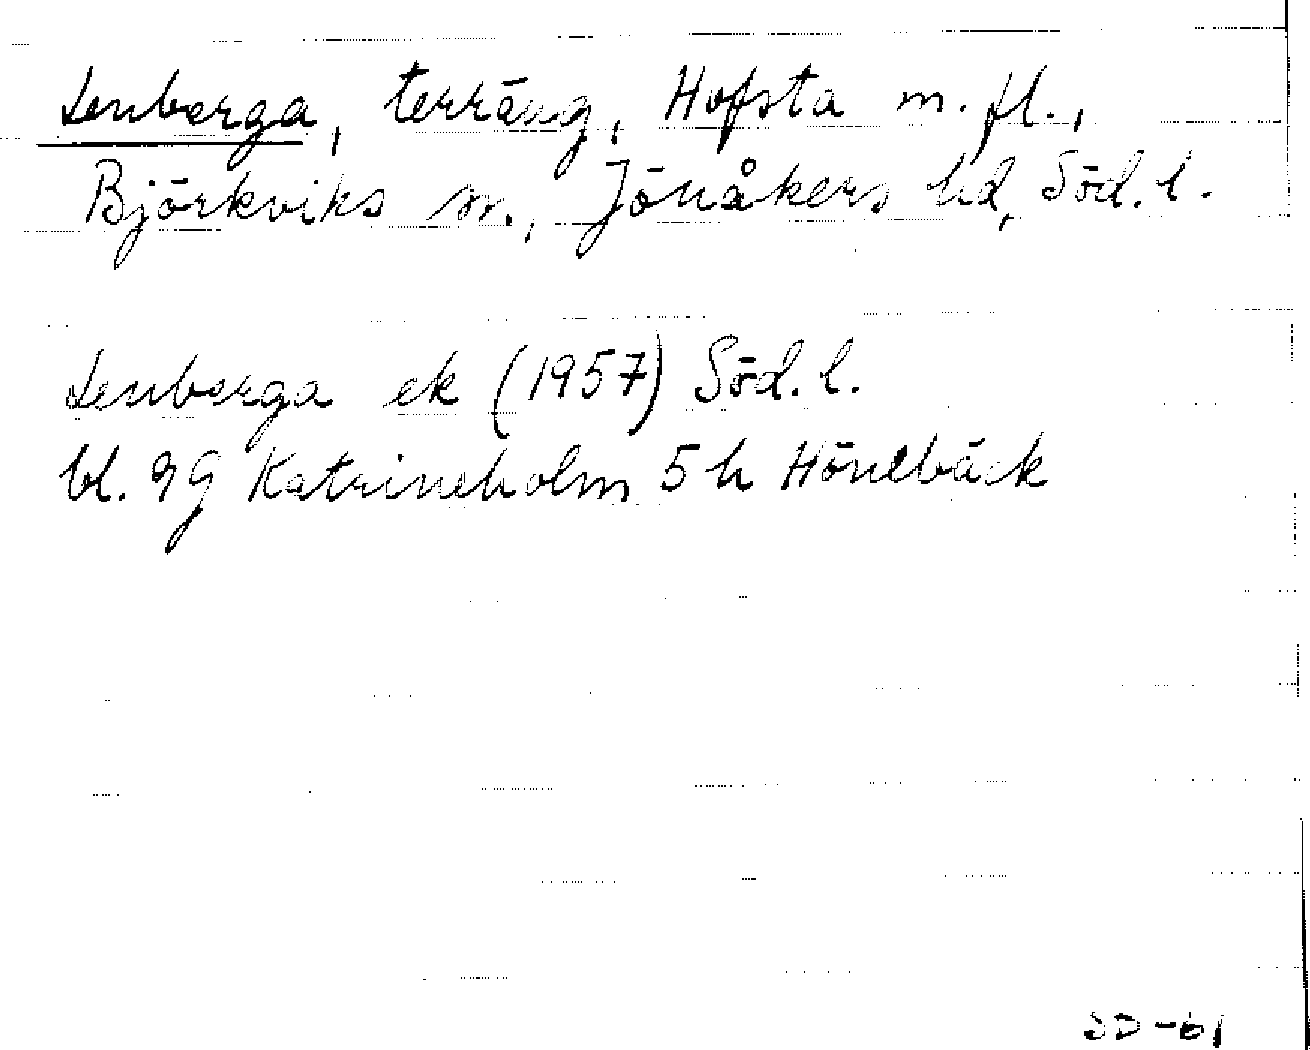 Lenberga, terräng, Hofsta m. fl.,
Björkviks sn., Jönåkers hd, Söd. l.
Lenberga ek (1957) Söd. l.
bl. 9G Katrineholm 5h Hönebäck
SD-61